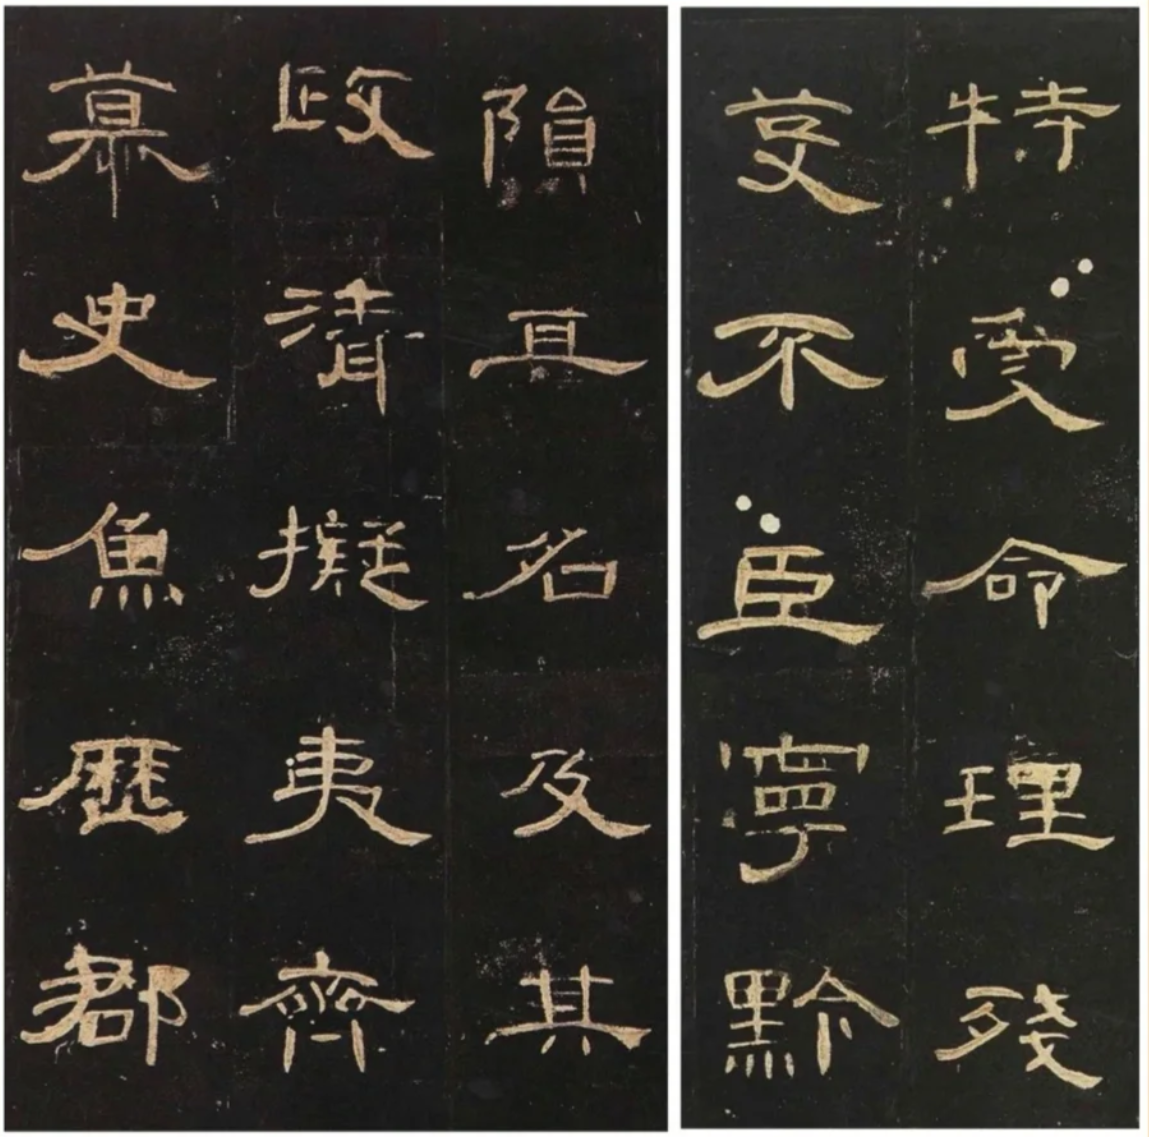 特受命理殘
芟不臣寧黔
隕其名及其
政清擬夷齊
慕史魚歷郡